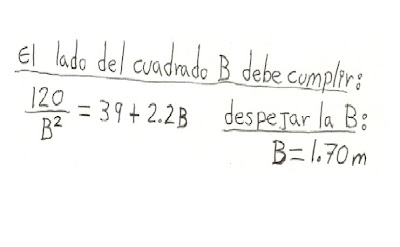 El lado del cuadrado B debe cumplir:
120/B² = 39 + 2.2B despejar la B:
B = 1.70 m